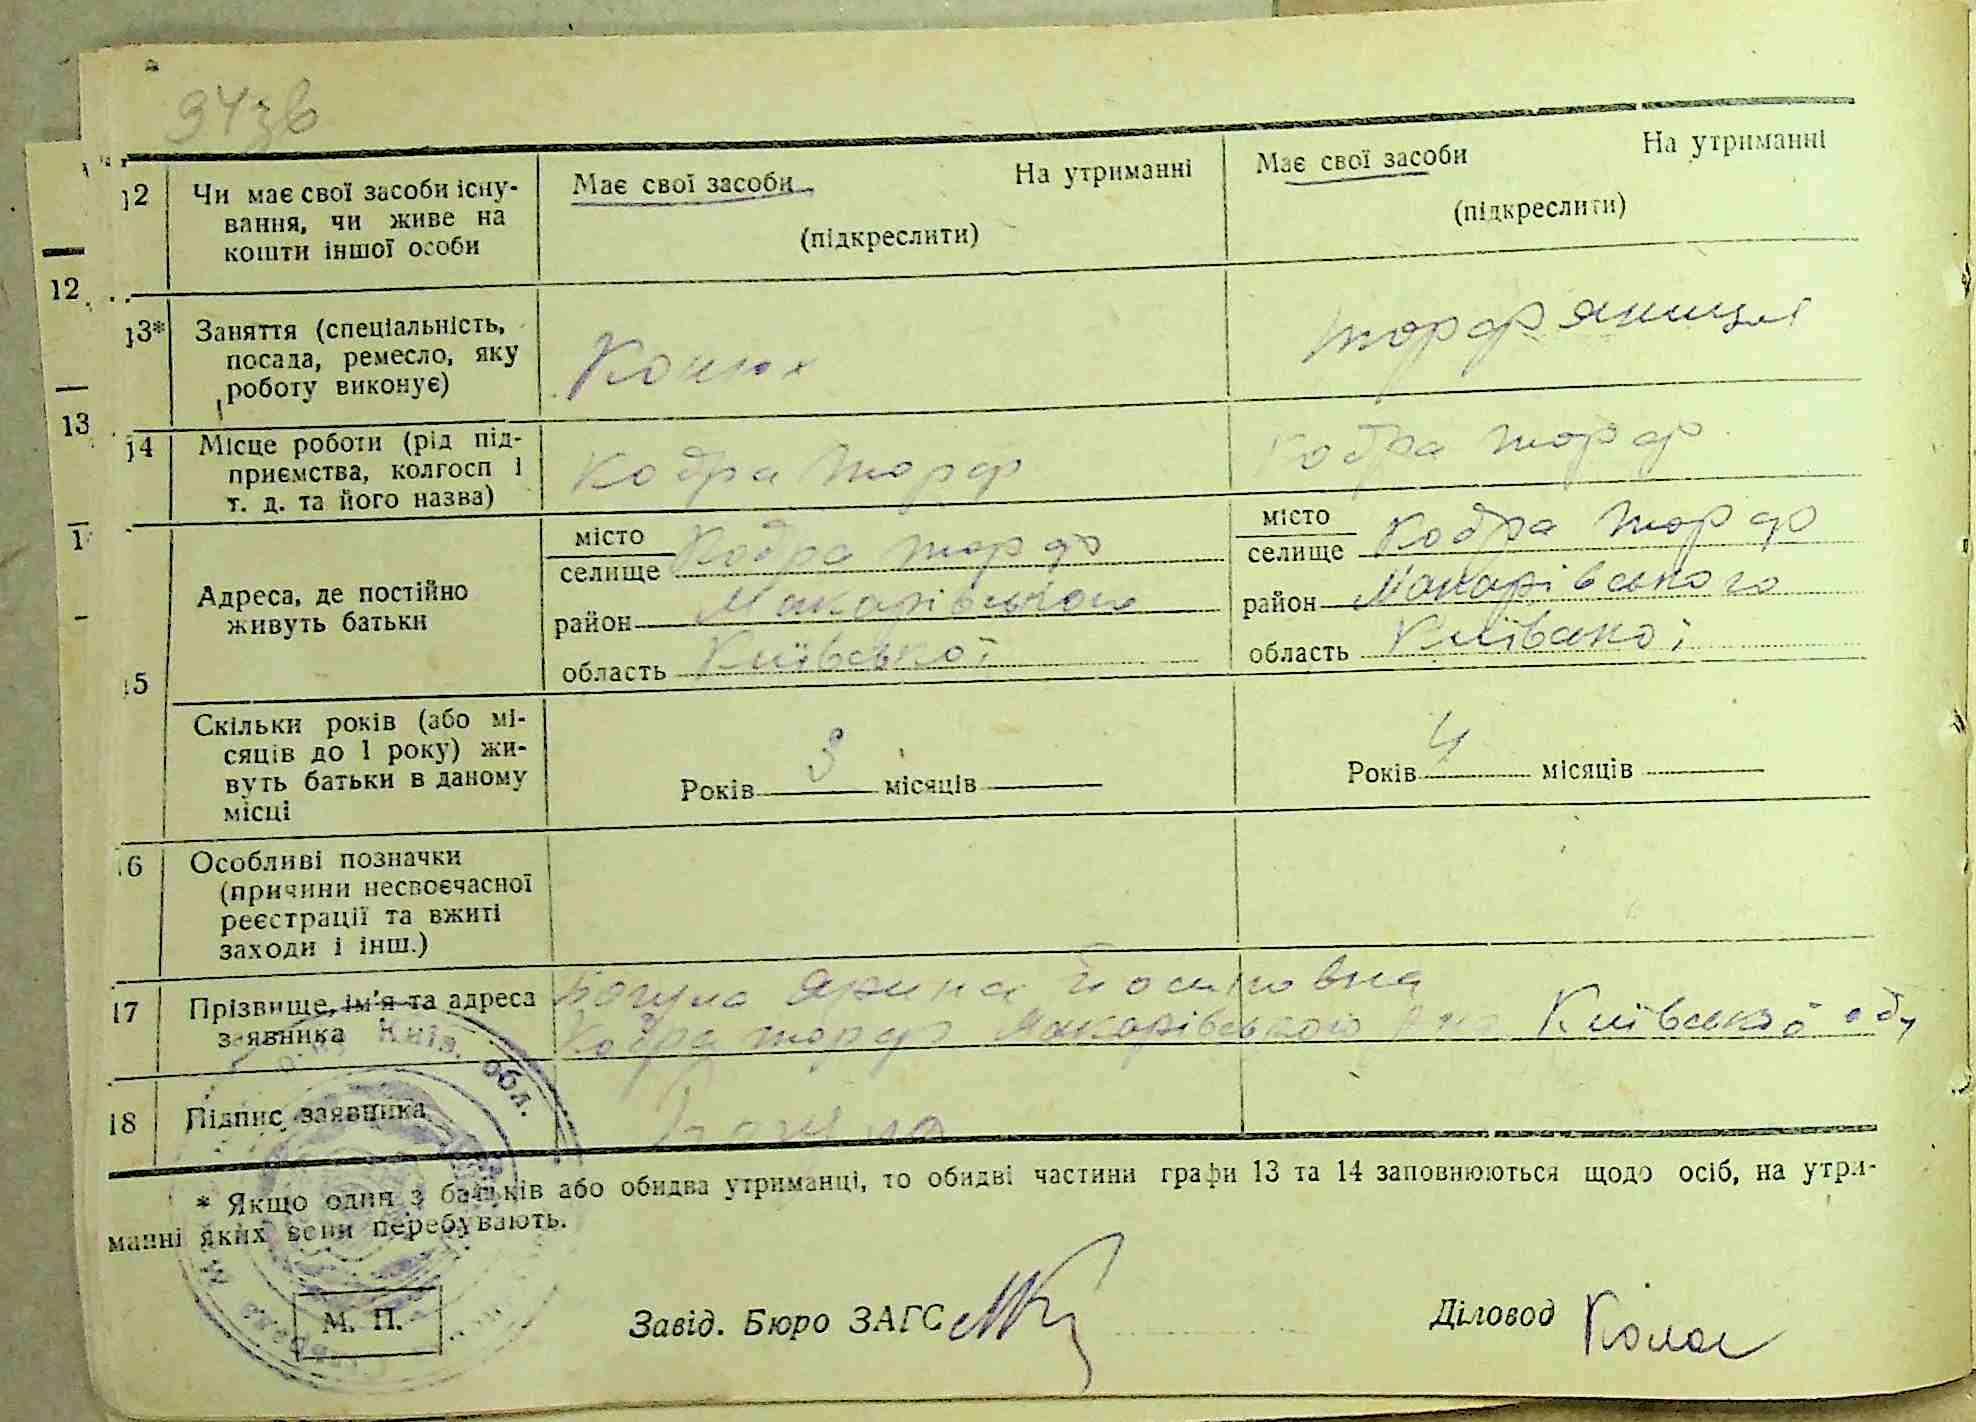 94зв
12 Чи має свої засоби існу-
вання, чи живе на
кошти іншої особи
Має свої засоби На утриманні
(підкреслити)
Має свої засоби На утриманні
(підкреслити)
12
13* Заняття (спеціальність,
посада, ремесло, яку
роботу виконує)
Конюх
торфяниця
13
14 Місце роботи (рід під-
приємства, колгосп і
т. д. та його назва)
Кодра торф
Кодра торф
15
Адреса, де постійно
живуть батьки
місто
селище Кодра торф
район Макарівського
область Київської
місто
селище Кодра торф
район Макарівського
область Київської
Скільки років (або мі-
сяців до 1 року) жи-
вуть батьки в даному
місці
Років 3 місяців
Років 4 місяців
16 Особливі позначки
(причини несвоєчасної
реєстрації та вжиті
заходи і інш.)
17 Прізвище, ім'я та адреса
заявника
Ярина
Кодра торф Макарівського р-на Київської обл
18 Підпис заявника
Київ. обл.
* Якщо один з батьків або обидва утриманці, то обидві частини графи 13 та 14 заповнюються щодо осіб, на утри-
манні яких вони перебувають.
М. П.
Завід. Бюро ЗАГС
Діловод